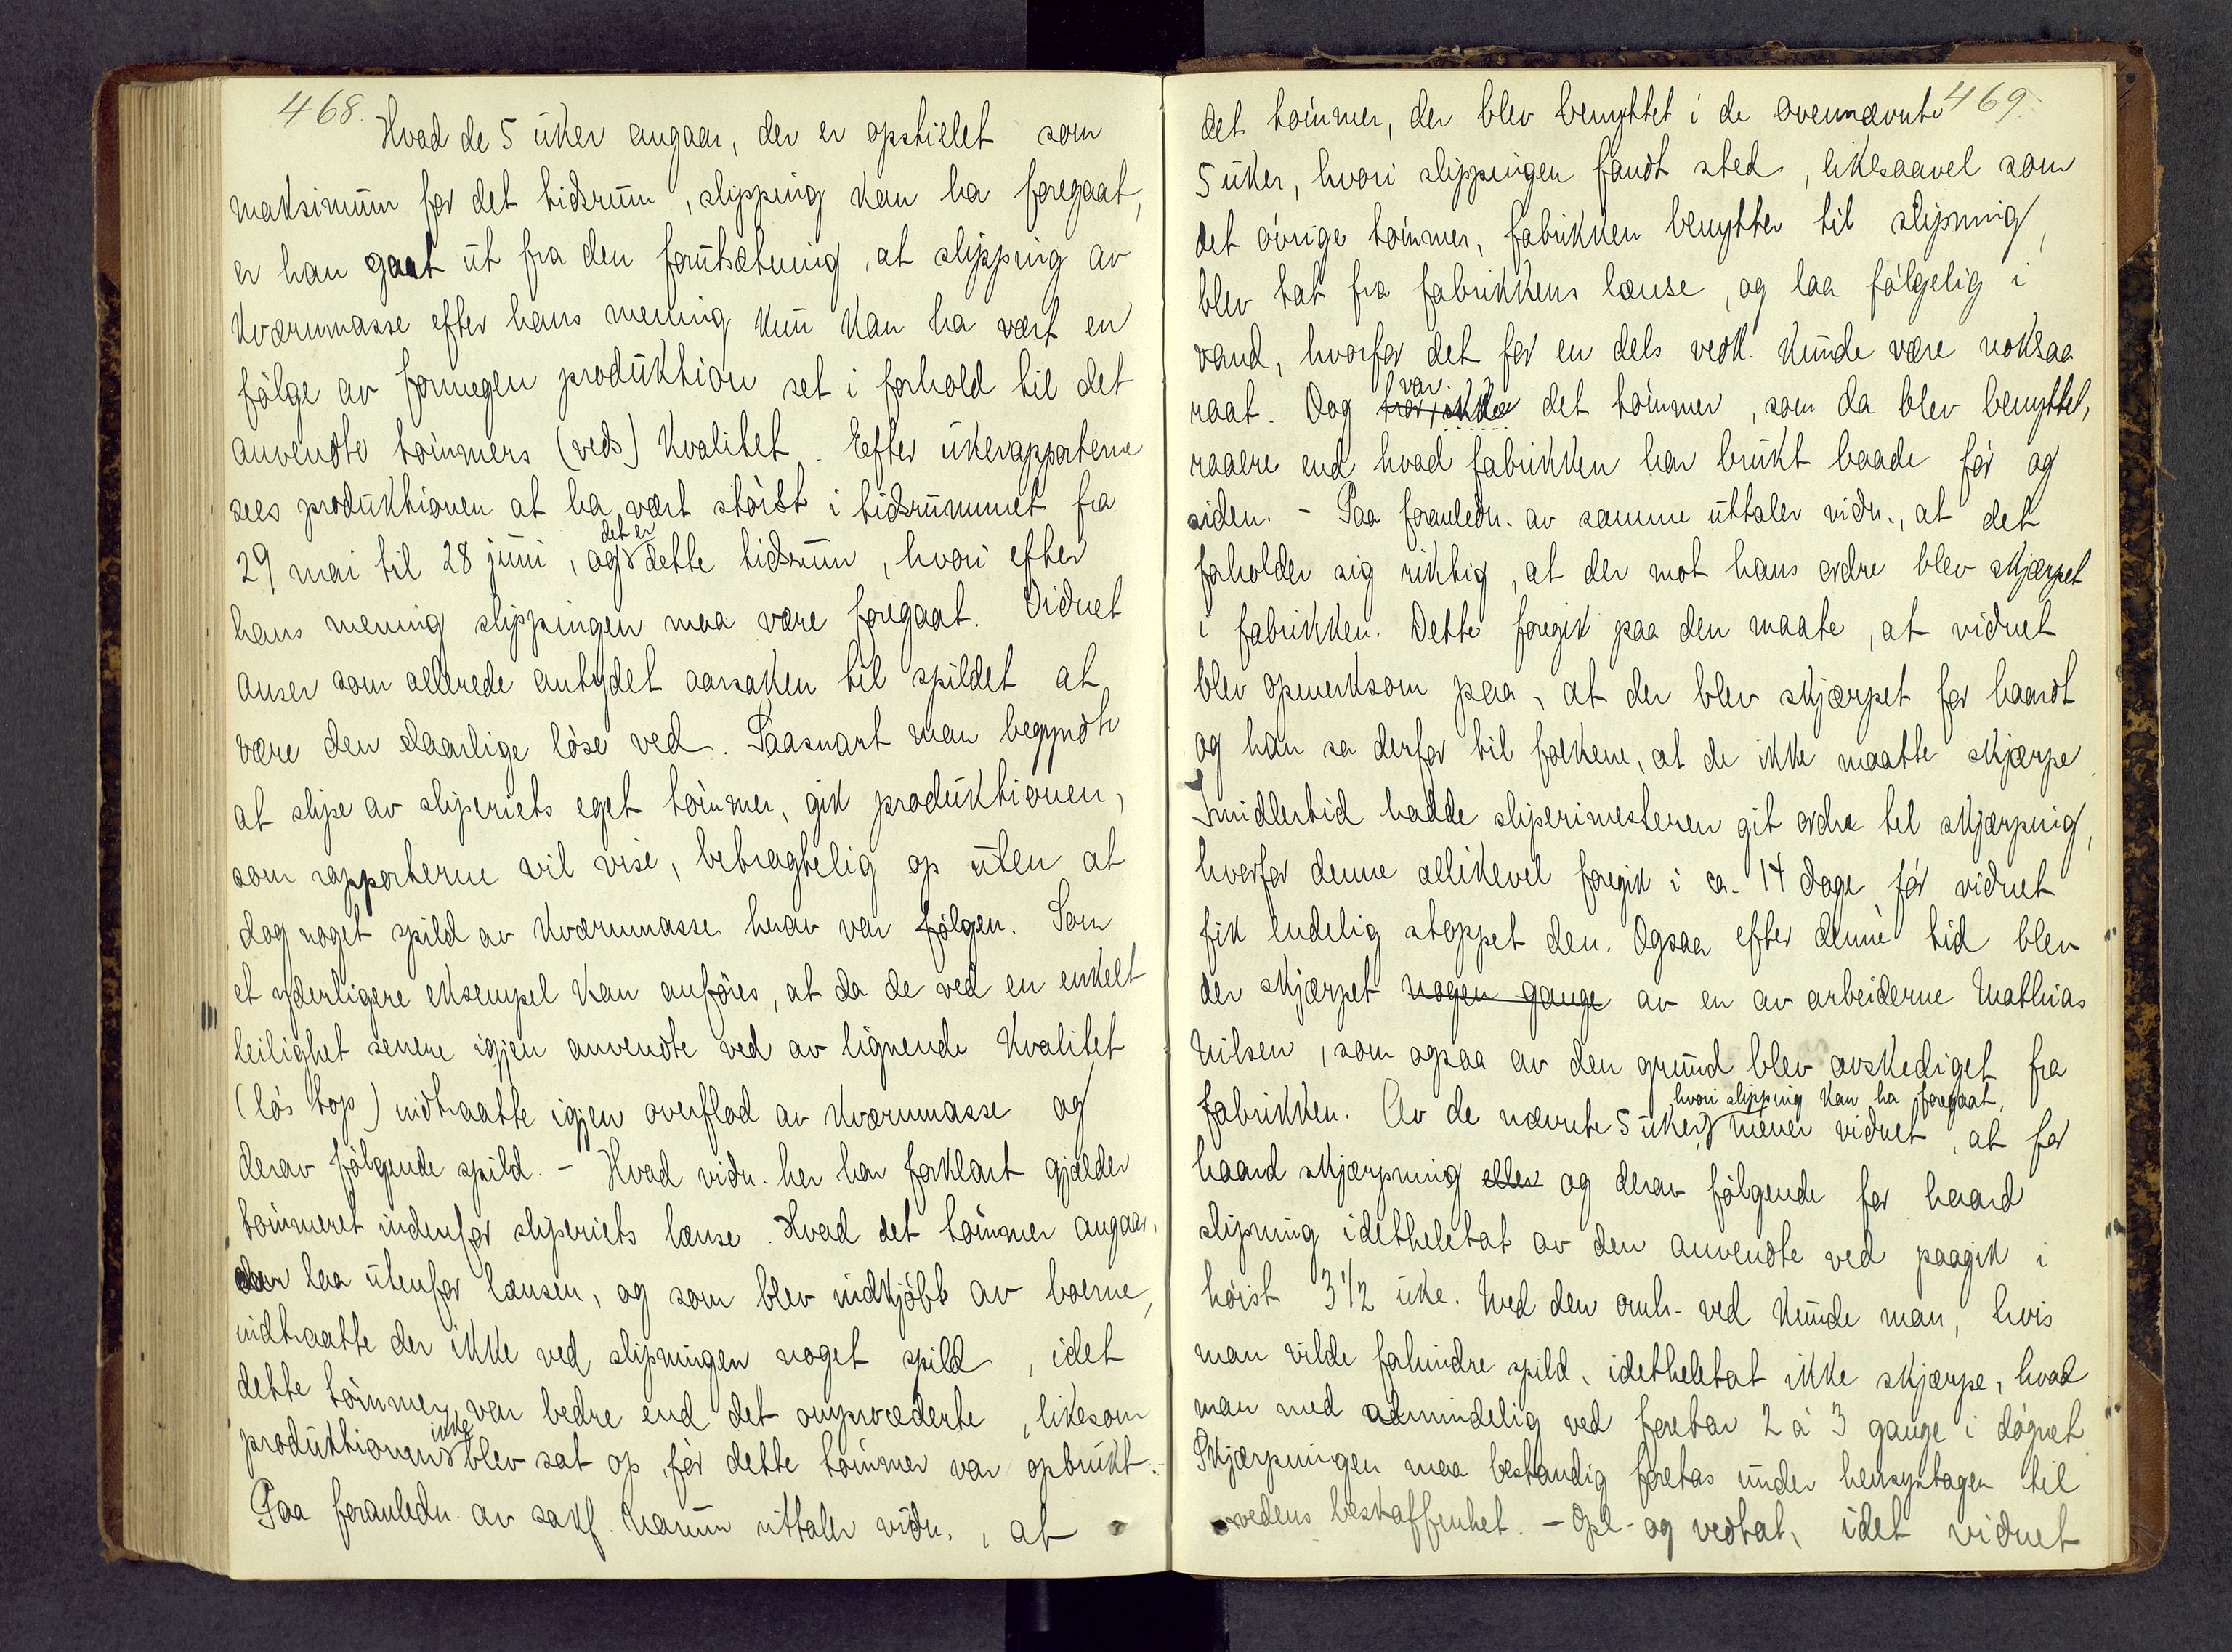 468.
Hvad de 5 uker angaar, der er opstillet som
maksimum for det tidsrum, slipping kan ha foregaat,
er han gaat ut fra den forutsetning, at slipping av
kværnmasse efter hans mening kun kan ha vært en
følge av formegen produktion set i forhold til det
anvendte tømmers (veds) kvalitet. Efter ukerapporterne
sees produktionen at ha vært størst i tidsrummet fra
29 mai til 28 juni, og det er dette tidsrum, hvori efter
hans mening slippingen maa være foregaat. Vidnet
anser som allerede antydet aarsaken til spildet at
være den daarlige løse ved. Saasnart man begyndte
at slipe av sliperiets eget tømmer, gik produktionen,
som rapporterne vil vise, betragtelig op uten at
dog noget spild av kværnmasse herav var følgen. Som
et yderligere eksempel kan anføres, at da de ved en enkelt
leilighet senere igjen anvendte ved av lignende kvalitet
(løs top) indtraatte igjen overflod av kværnmasse og
derav følgende spild. - Hvad vidn. her har forklart gjælder
tømmeret indenfor sliperiets lænse. Hvad det tømmer angaar,
der laa utenfor lænsen, og som blev indkjøbt av boerne,
indtraatte der ikke ved slipningen noget spild, idet
dette tømmer var bedre end det omprocederte, likesom
produktionen ikke blev sat op før dette tømmer var opbrukt.
Paa foranledn. av sakf. Namm uttaler vidn., at
469.
det tømmer, der blev benyttet i de ovennævnte
5 uker, hvori slippingen fandt sted, likesaavel som
det øvrige tømmer, fabrikken benytter til slipning,
blev tat fra fabrikkens lænse, og laa følgelig i
vand, hvorfor det for en dels vedk. kunde være noksaa
raat. Dog var ikke det tømmer, som da blev benyttet,
raaere end hvad fabrikken har brukt baade før og
siden. - Paa foranledn. av samme uttaler vidn., at det
forholder sig riktig, at der mot hans ordre blev skjærpet
i fabrikken. Dette foregik paa den maate, at vidnet
blev opmerksom paa, at der blev skjærpet for haardt
og han sa derfor til folkene, at de ikke maatte skjærpe.
Imidlertid hadde sliperimesteren git ordre til skjærping,
hvorfor denne allikevel foregik i ca. 14 dage før vidnet
fik endelig stoppet den. Ogsaa efter denne tid blev
der skjærpet nogen gange av en av arbeiderne Mathias
Nilsen, som ogsaa av den grund blev avskediget fra
fabrikken. Av de nævnte 5 uker, hvori slipping kan ha foregaat, mener vidnet, at for
haard skjærpning eller og derav følgende for haard
slipning idetheletat av den anvendte ved paagik i
høist 3 1/2 uke. Med den omh. ved kunde man, hvis
man vilde forhindre spild, idetheletat ikke skjærpe, hvad
man med almindelig ved foretar 2 à 3 gange i døgnet.
Skjærpningen maa bestandig foretas under hensyntagen til
vedens beskaffenhet. - Opl. og vedtat, idet vidnet